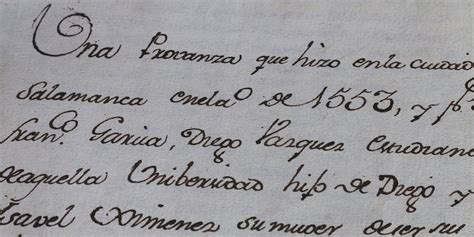 Una Provanza que hizo enla ciudad
Salamanca enel aº de 1553, y pº
franº. Garcia, Diego Vazquez estudian
deaquella Unibersidad hijº de Diego y
Ysavel Ximenez su muger de ser sus